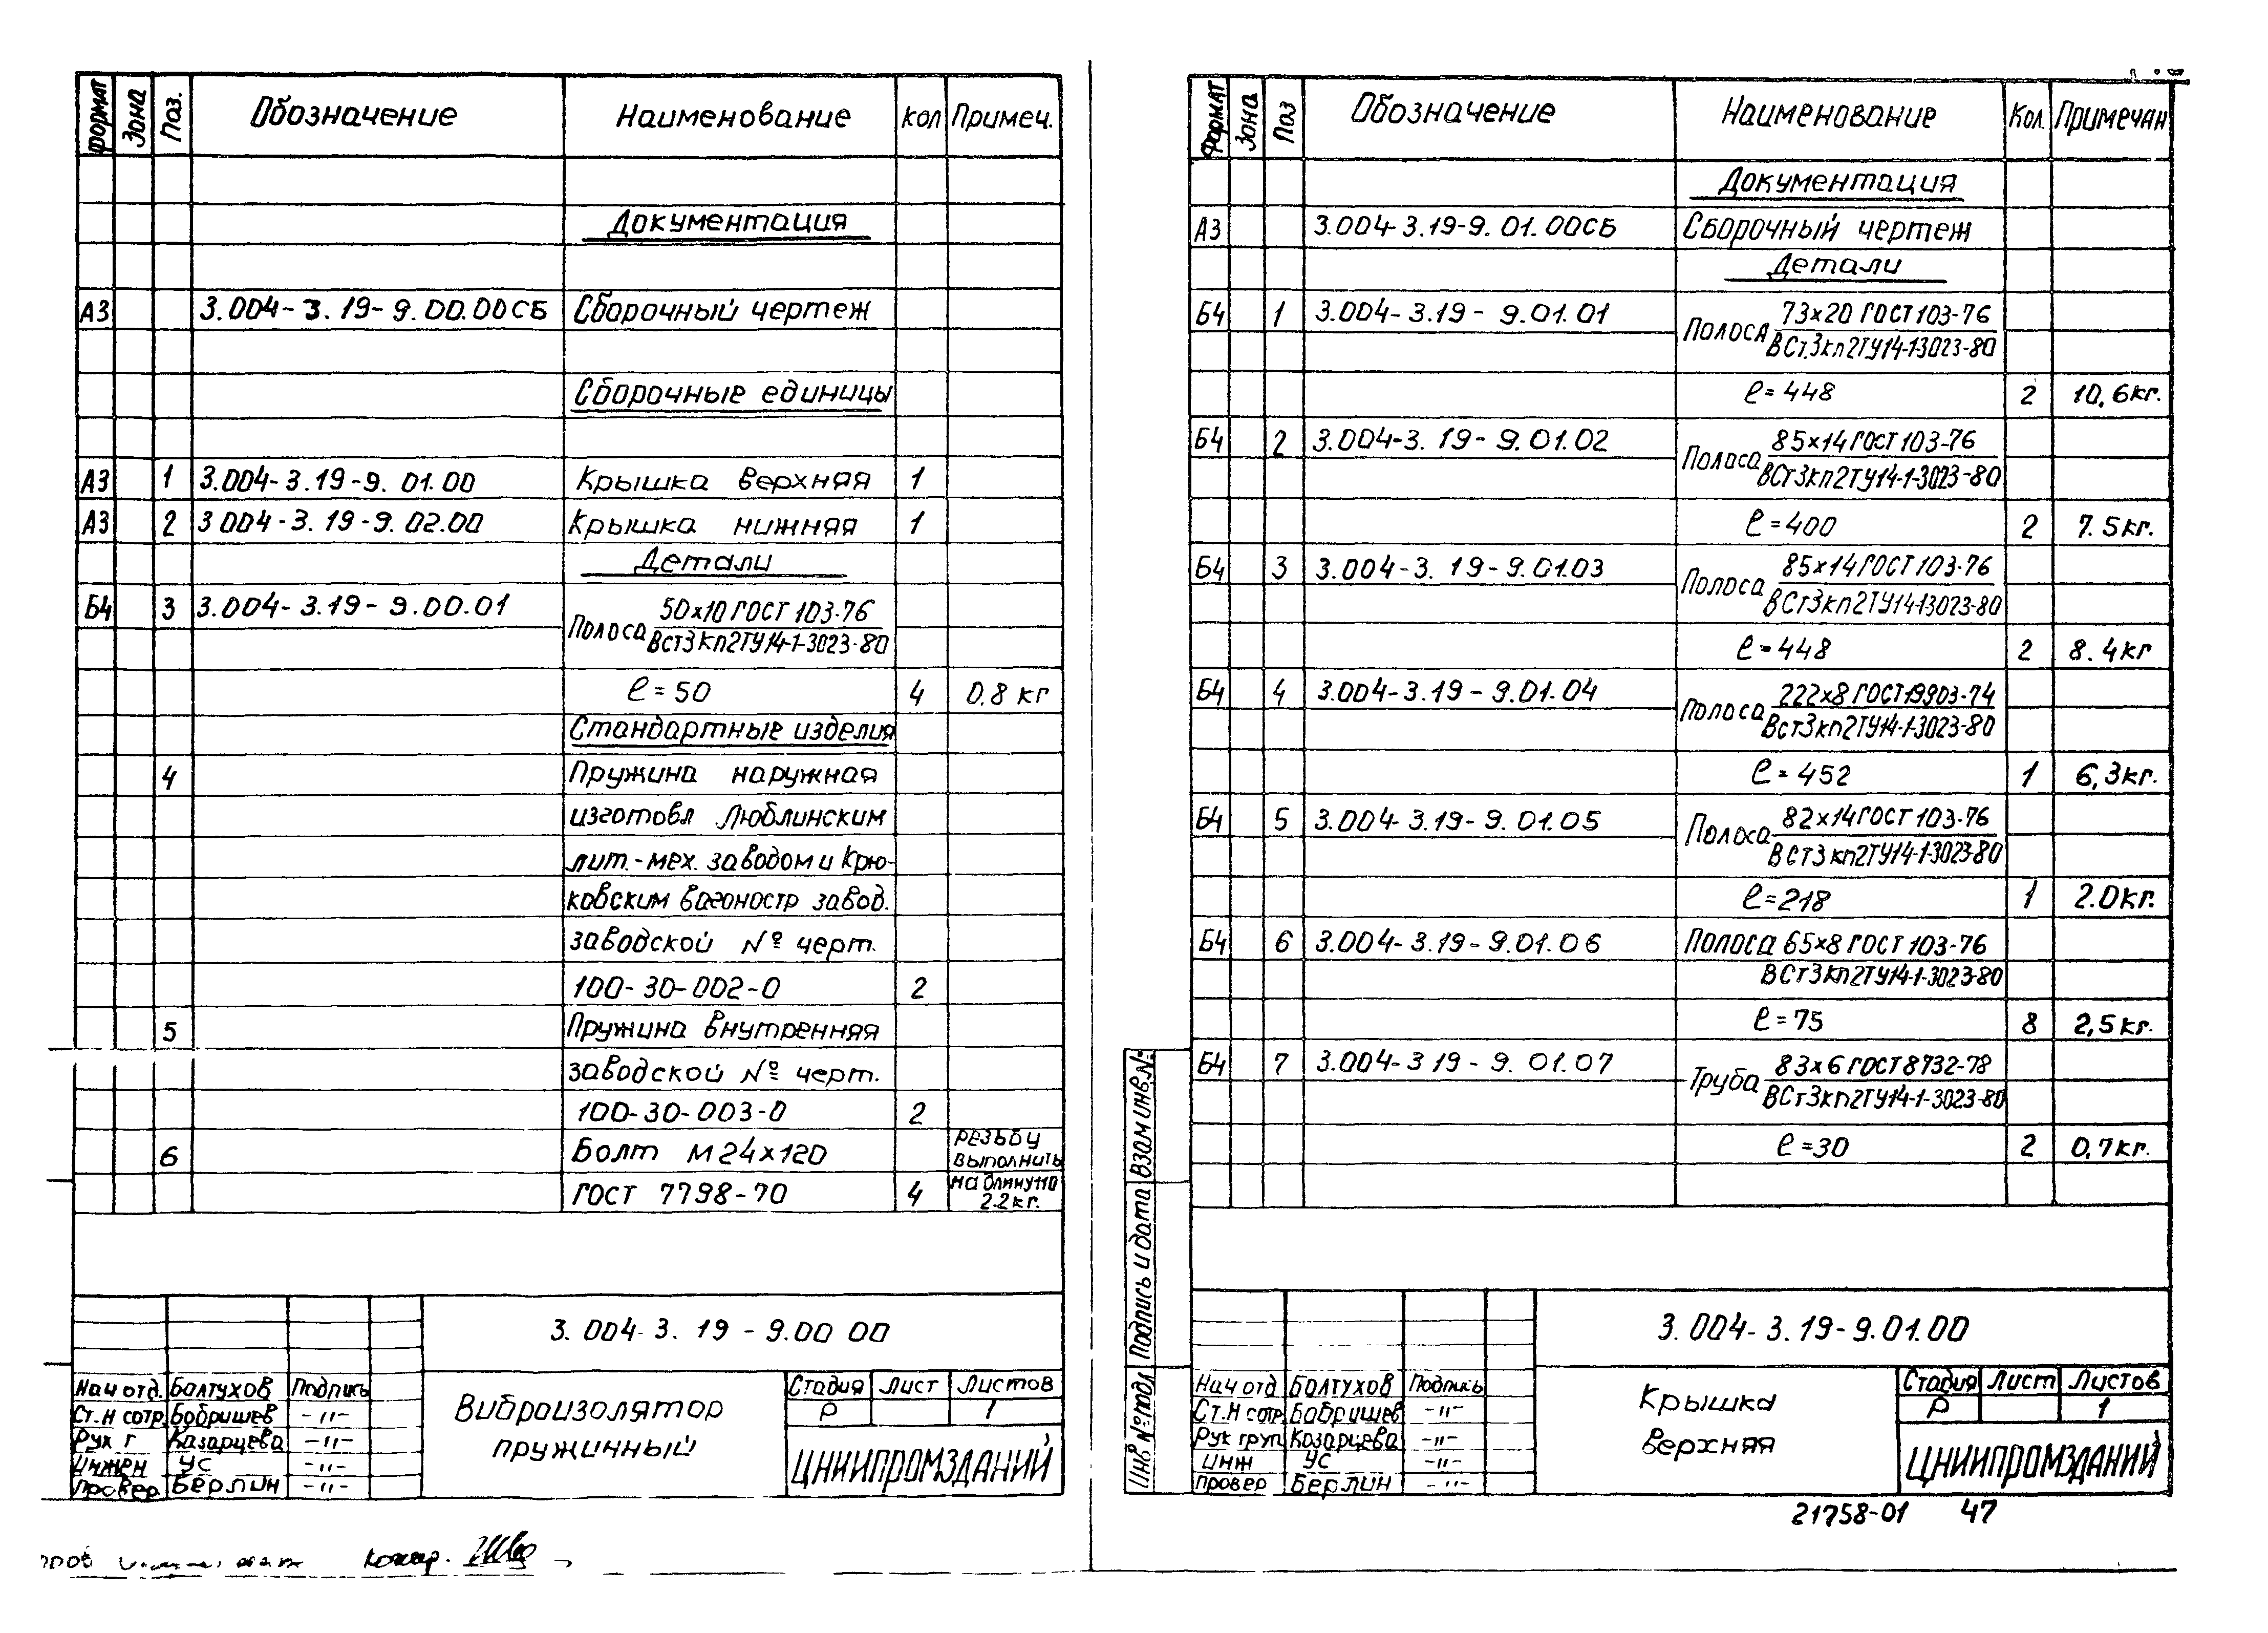 Формат Зона Поз. Обозначение Наименование Кол Примеч.
Документация
А3 3.004-3.19-9.00.00СБ Сборочный чертеж
Сборочные единицы
А3 1 3.004-3.19-9.01.00 Крышка верхняя 1
А3 2 3 004-3.19-9.02.00 Крышка нижняя 1
Детали
Б4 3 3.004-3.19-9.00.01 Полоса 50х10 ГОСТ 103-76
ВСт3кп2ТУ14-1-3023-80
ℓ=50 4 0.8 кг
Стандартные изделия
4 Пружина наружная
изготовл Люблинским
лит.-мех. заводом и Крю-
ковским вагоностр завод.
заводской № черт.
100-30-002-0 2
5 Пружина внутренняя
заводской № черт.
100-30-003-0 2
6 Болт М24х120 резьбу
выполнить
ГОСТ 7798-70 4 на длину 110
2.2кг.
3.004-3.19-9.00 00
Нач отд. Балтухов Подпись
Ст.н сотр Бобришев -"-
Рук г Казарцева -"-
Инжен УС -"-
Провер Берлин -"-
Виброизолятор
пружинный
Стадия Лист Листов
Р 1
ЦНИИПРОМЗДАНИЙ
Формат Зона Поз Обозначение Наименование Кол. Примечан
Документация
А3 3.004-3.19-9.01.00СБ Сборочный чертеж
Детали
Б4 1 3.004-3.19-9.01.01 Полоса 73х20 ГОСТ 103-76
ВСт.3кп2ТУ14-1-3023-80
ℓ=448 2 10,6кг.
Б4 2 3.004-3.19-9.01.02 Полоса 85х14 ГОСТ 103-76
ВСт3кп2ТУ14-1-3023-80
ℓ=400 2 7.5кг.
Б4 3 3.004-3.19-9.01.03 Полоса 85х14 ГОСТ 103-76
ВСт3кп2ТУ14-1-3023-80
ℓ=448 2 8.4кг
Б4 4 3.004-3.19-9.01.04 Полоса 222х8 ГОСТ19903-74
ВСт3кп2ТУ14-1-3023-80
ℓ=452 1 6,3кг.
Б4 5 3.004-3.19-9.01.05 Полоса 82х14 ГОСТ 103-76
ВСт3кп2ТУ14-1-3023-80
ℓ=218 1 2.0кг.
Б4 6 3.004-3.19-9.01.06 Полоса 65х8 ГОСТ 103-76
ВСт3кп2ТУ14-1-3023-80
ℓ=75 8 2,5кг.
Б4 7 3.004-3 19-9.01.07 Труба 83х6 ГОСТ 8732-78
ВСт3кп2ТУ14-1-3023-80
ℓ=30 2 0,7кг.
Инв № подл Подпись и дата Взам инв.№
3.004-3.19-9.01.00
Нач отд Балтухов Подпись
Ст.н сотр Бобришев -"-
Рук груп Казарцева -"-
Инж УС -"-
Провер Берлин -"-
Крышка
верхняя
Стадия Лист Листов
Р 1
ЦНИИПРОМЗДАНИЙ
21758-01 47
Копир.